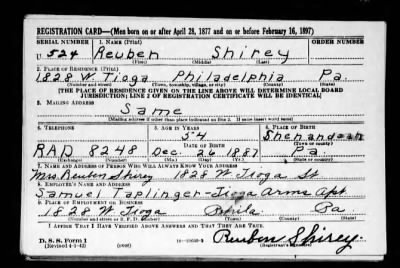 REGISTRATION CARD—(Men born on or after April 28, 1877 and on or before February 16, 1897)
SERIAL NUMBER 1. NAME (Print) ORDER NUMBER
U 524 Reuben Shirey
(First) (Middle) (Last)
2. PLACE OF RESIDENCE (Print)
1828 W. Tioga Philadelphia Pa.
(Number and street) (Town, township, village, or city) (County) (State)
[THE PLACE OF RESIDENCE GIVEN ON THE LINE ABOVE WILL DETERMINE LOCAL BOARD
JURISDICTION; LINE 2 OF REGISTRATION CERTIFICATE WILL BE IDENTICAL]
3. MAILING ADDRESS
Same
[Mailing address if other than place indicated on line 2. If same insert word same]
4. TELEPHONE 5. AGE IN YEARS 6. PLACE OF BIRTH
54 Shenandoah
DATE OF BIRTH (Town or county)
RAD 8248 Dec. 26 1887 Pa.
(Exchange) (Number) (Mo.) (Day) (Yr.) (State or country)
7. NAME AND ADDRESS OF PERSON WHO WILL ALWAYS KNOW YOUR ADDRESS
Mrs. Reuben Shirey 1828 W Tioga St
8. EMPLOYER'S NAME AND ADDRESS
Samuel Taplinger-Tioga Arms Apt
9. PLACE OF EMPLOYMENT OR BUSINESS
1828 W Tioga Phila Pa
(Number and street or R. F. D. number) (Town) (County) (State)
I AFFIRM THAT I HAVE VERIFIED ABOVE ANSWERS AND THAT THEY ARE TRUE.
D. S. S. Form 1
(Revised 4-1-42) (over) Reuben Shirey.
(Registrant's signature)